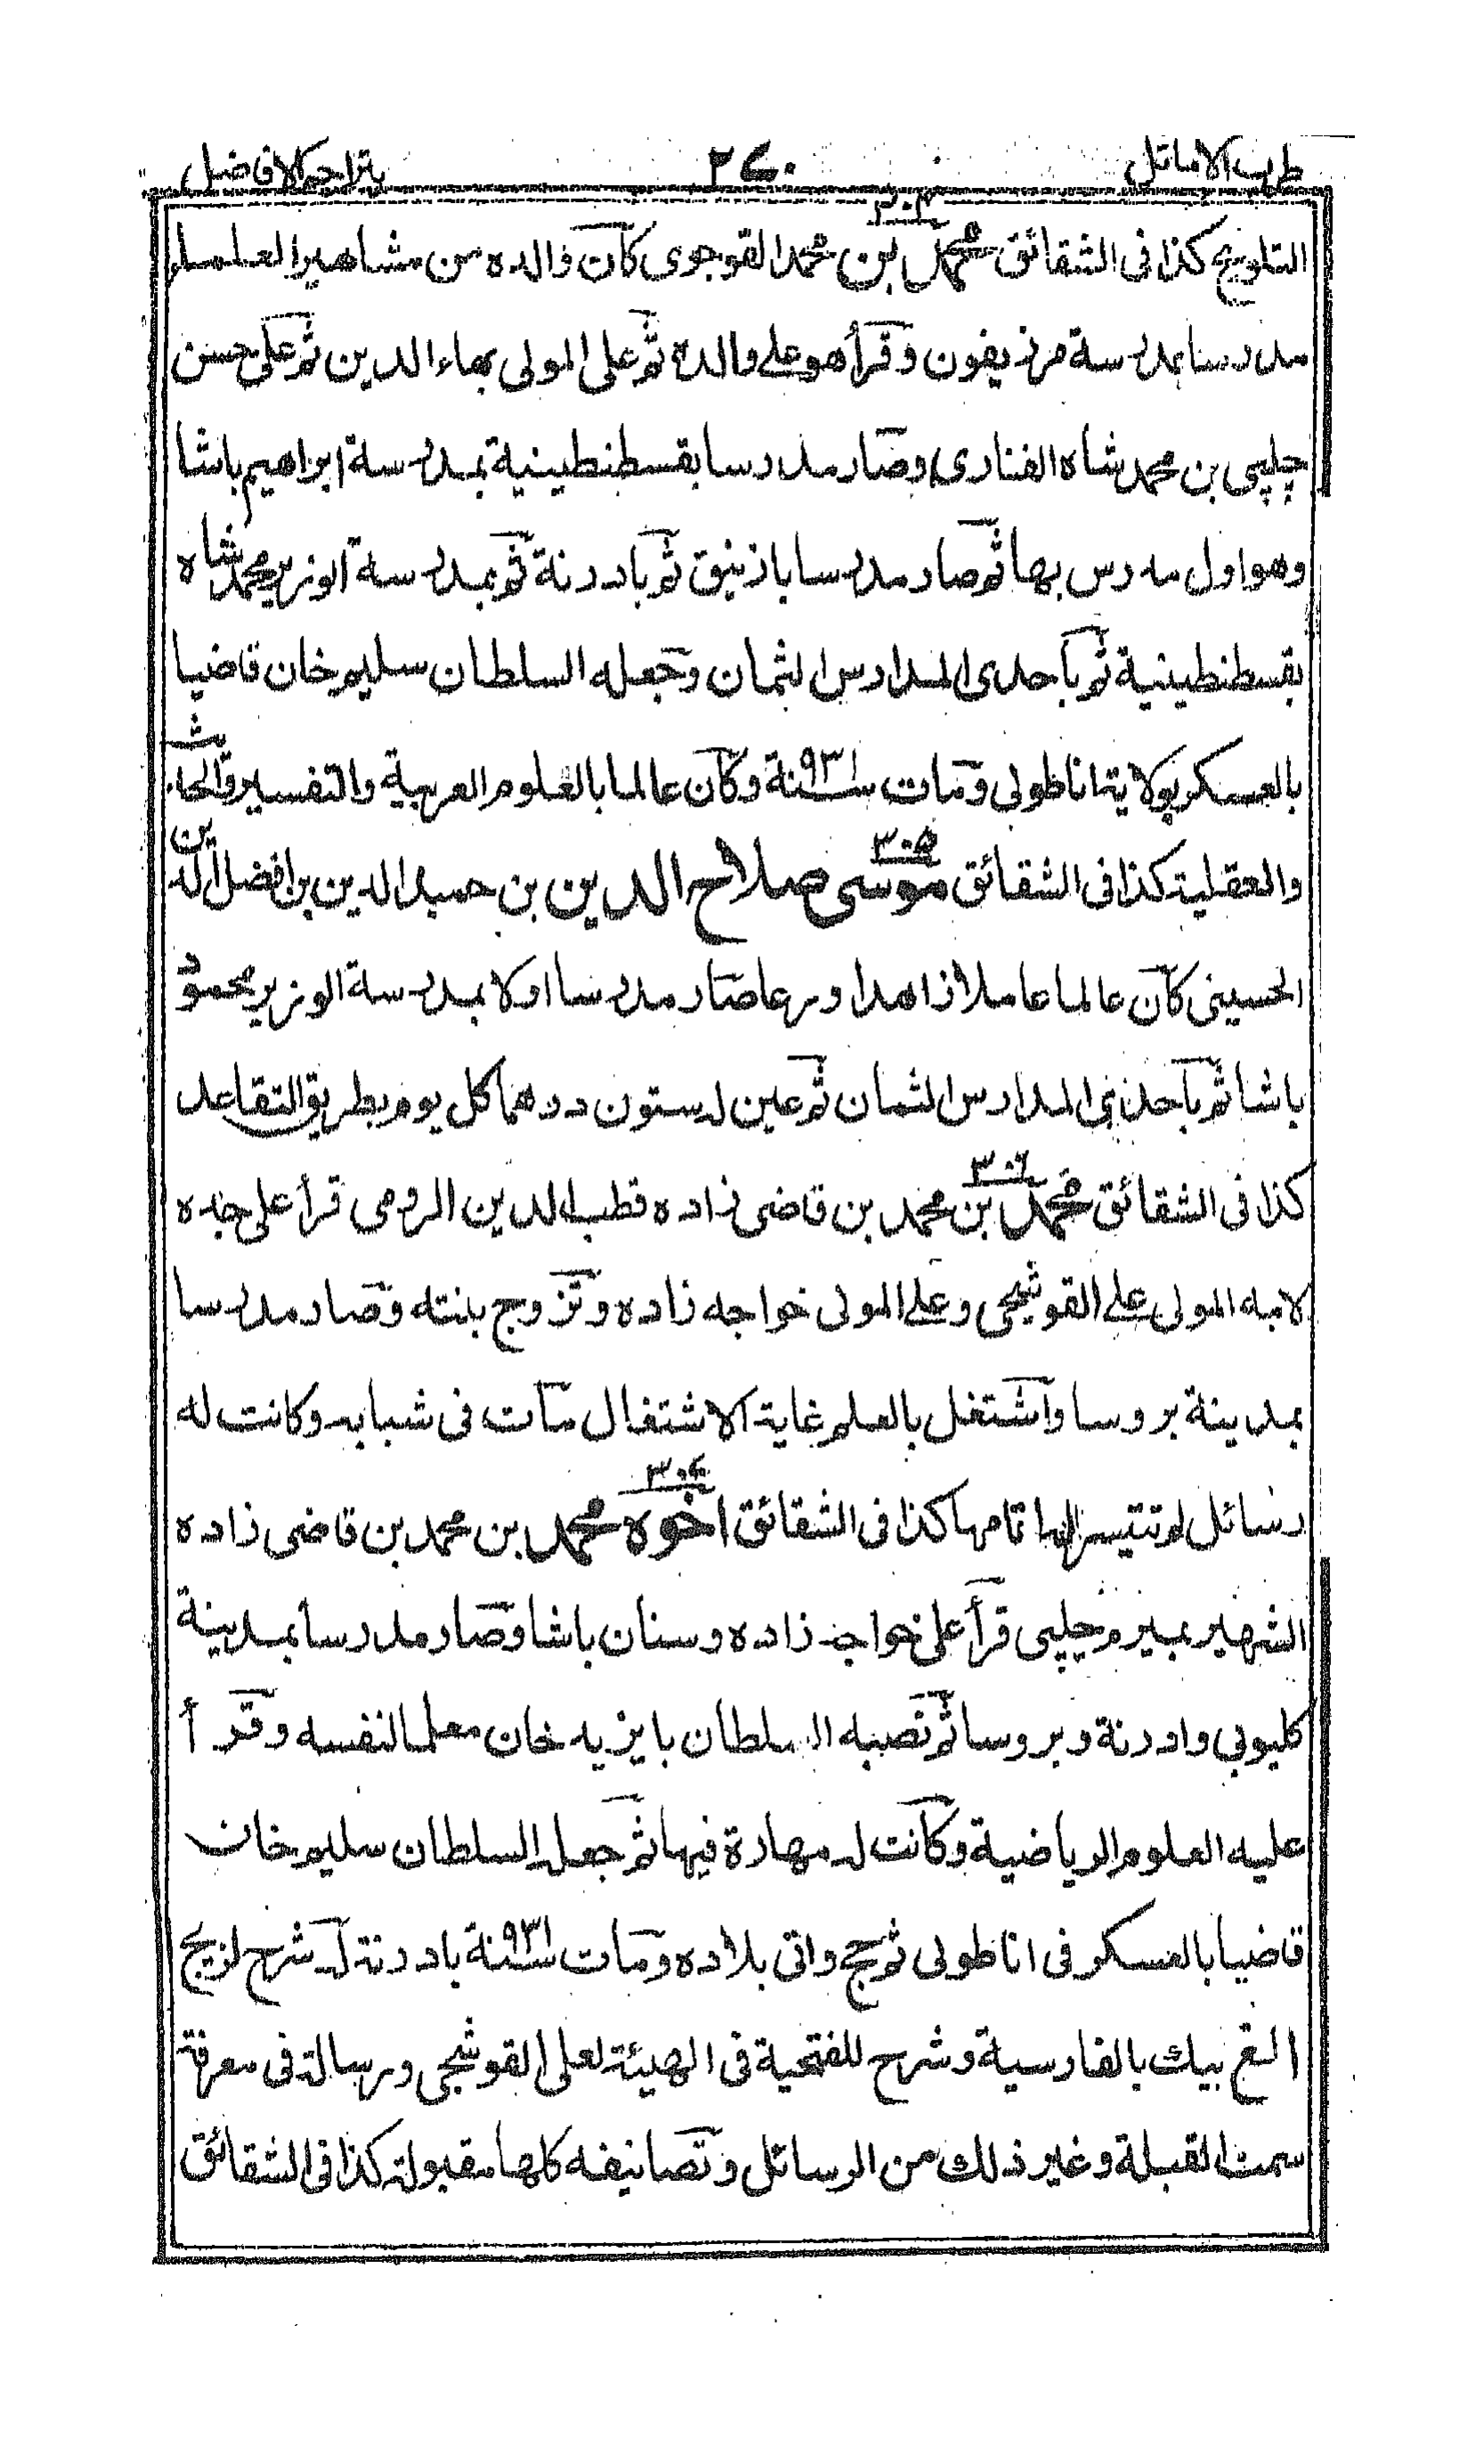 طرب الاماثل ٢٧٠ بتراجم الافاضل
٣٠٤
التلويح كذا فى الشقائق محمد بن محمد القوجوى كان والده من مشاهير العلماء
مدرسا بمدرسة مرزيفون وقرأ هو على والده ثم على المولى بهاء الدين ثم على حسن
چلپى بن محمد شاه الفنارى وصار مدرسا بقسطنطينية بمدرسة ابراهيم باشا
وهو اول مدرس بها ثم صار مدرسا بازنيق ثم بادرنة ثم بمدرسة الوزير محمد شاه
بقسطنطينية ثم باحدى المدارس الثمان وجعله السلطان سليم خان قاضيا
بالعسكر بولاية اناطولى ومات سنة ٩٣١ وكان عالما بالعلوم العربية والتفسير والحديث
٣٠٥
والعقلية كذا فى الشقائق موسى صلاح الدين بن حميد الدين بن افضل الدين
الحسينى كان عالما عاملا زاهدا ورعا صار مدرسا اولا بمدرسة الوزير محمود
باشا ثم باحدى المدارس الثمان ثم عين له ستون درهما كل يوم بطريق التقاعد
٣٠٦
كذا فى الشقائق محمد بن محمد بن قاضى زاده قطب الدين الرومى قرأ على جده
لامه المولى على القوشجى وعلى المولى خواجه زاده وتزوج بنته وصار مدرسا
بمدينة بروسا واشتغل بالعلم غاية الاشتغال مات فى شبابه وكانت له
٣٠٧
رسائل لم تتيسر لها اتمامها كذا فى الشقائق اخوه محمد بن محمد بن قاضى زاده
الشهير بميرم چلپى قرأ على خواجه زاده وسنان باشا وصار مدرسا بمدينة
كليوبى وادرنة وبروسا ثم نصبه السلطان بايزيد خان معلما لنفسه وقرأ
عليه العلوم الرياضية وكانت له مهارة فيها ثم جعله السلطان سليم خان
قاضيا بالعسكر فى اناطولى ثم حج واتى بلاده ومات سنة ٩٣١ بادرنة له شرح لزيج
الغ بيك بالفارسية وشرح للفتحية فى الهيئة لعلى القوشجى ورسالة فى معرفة
سمت القبلة وغير ذلك من الرسائل وتصانيفه كلها مقبولة كذا فى الشقائق